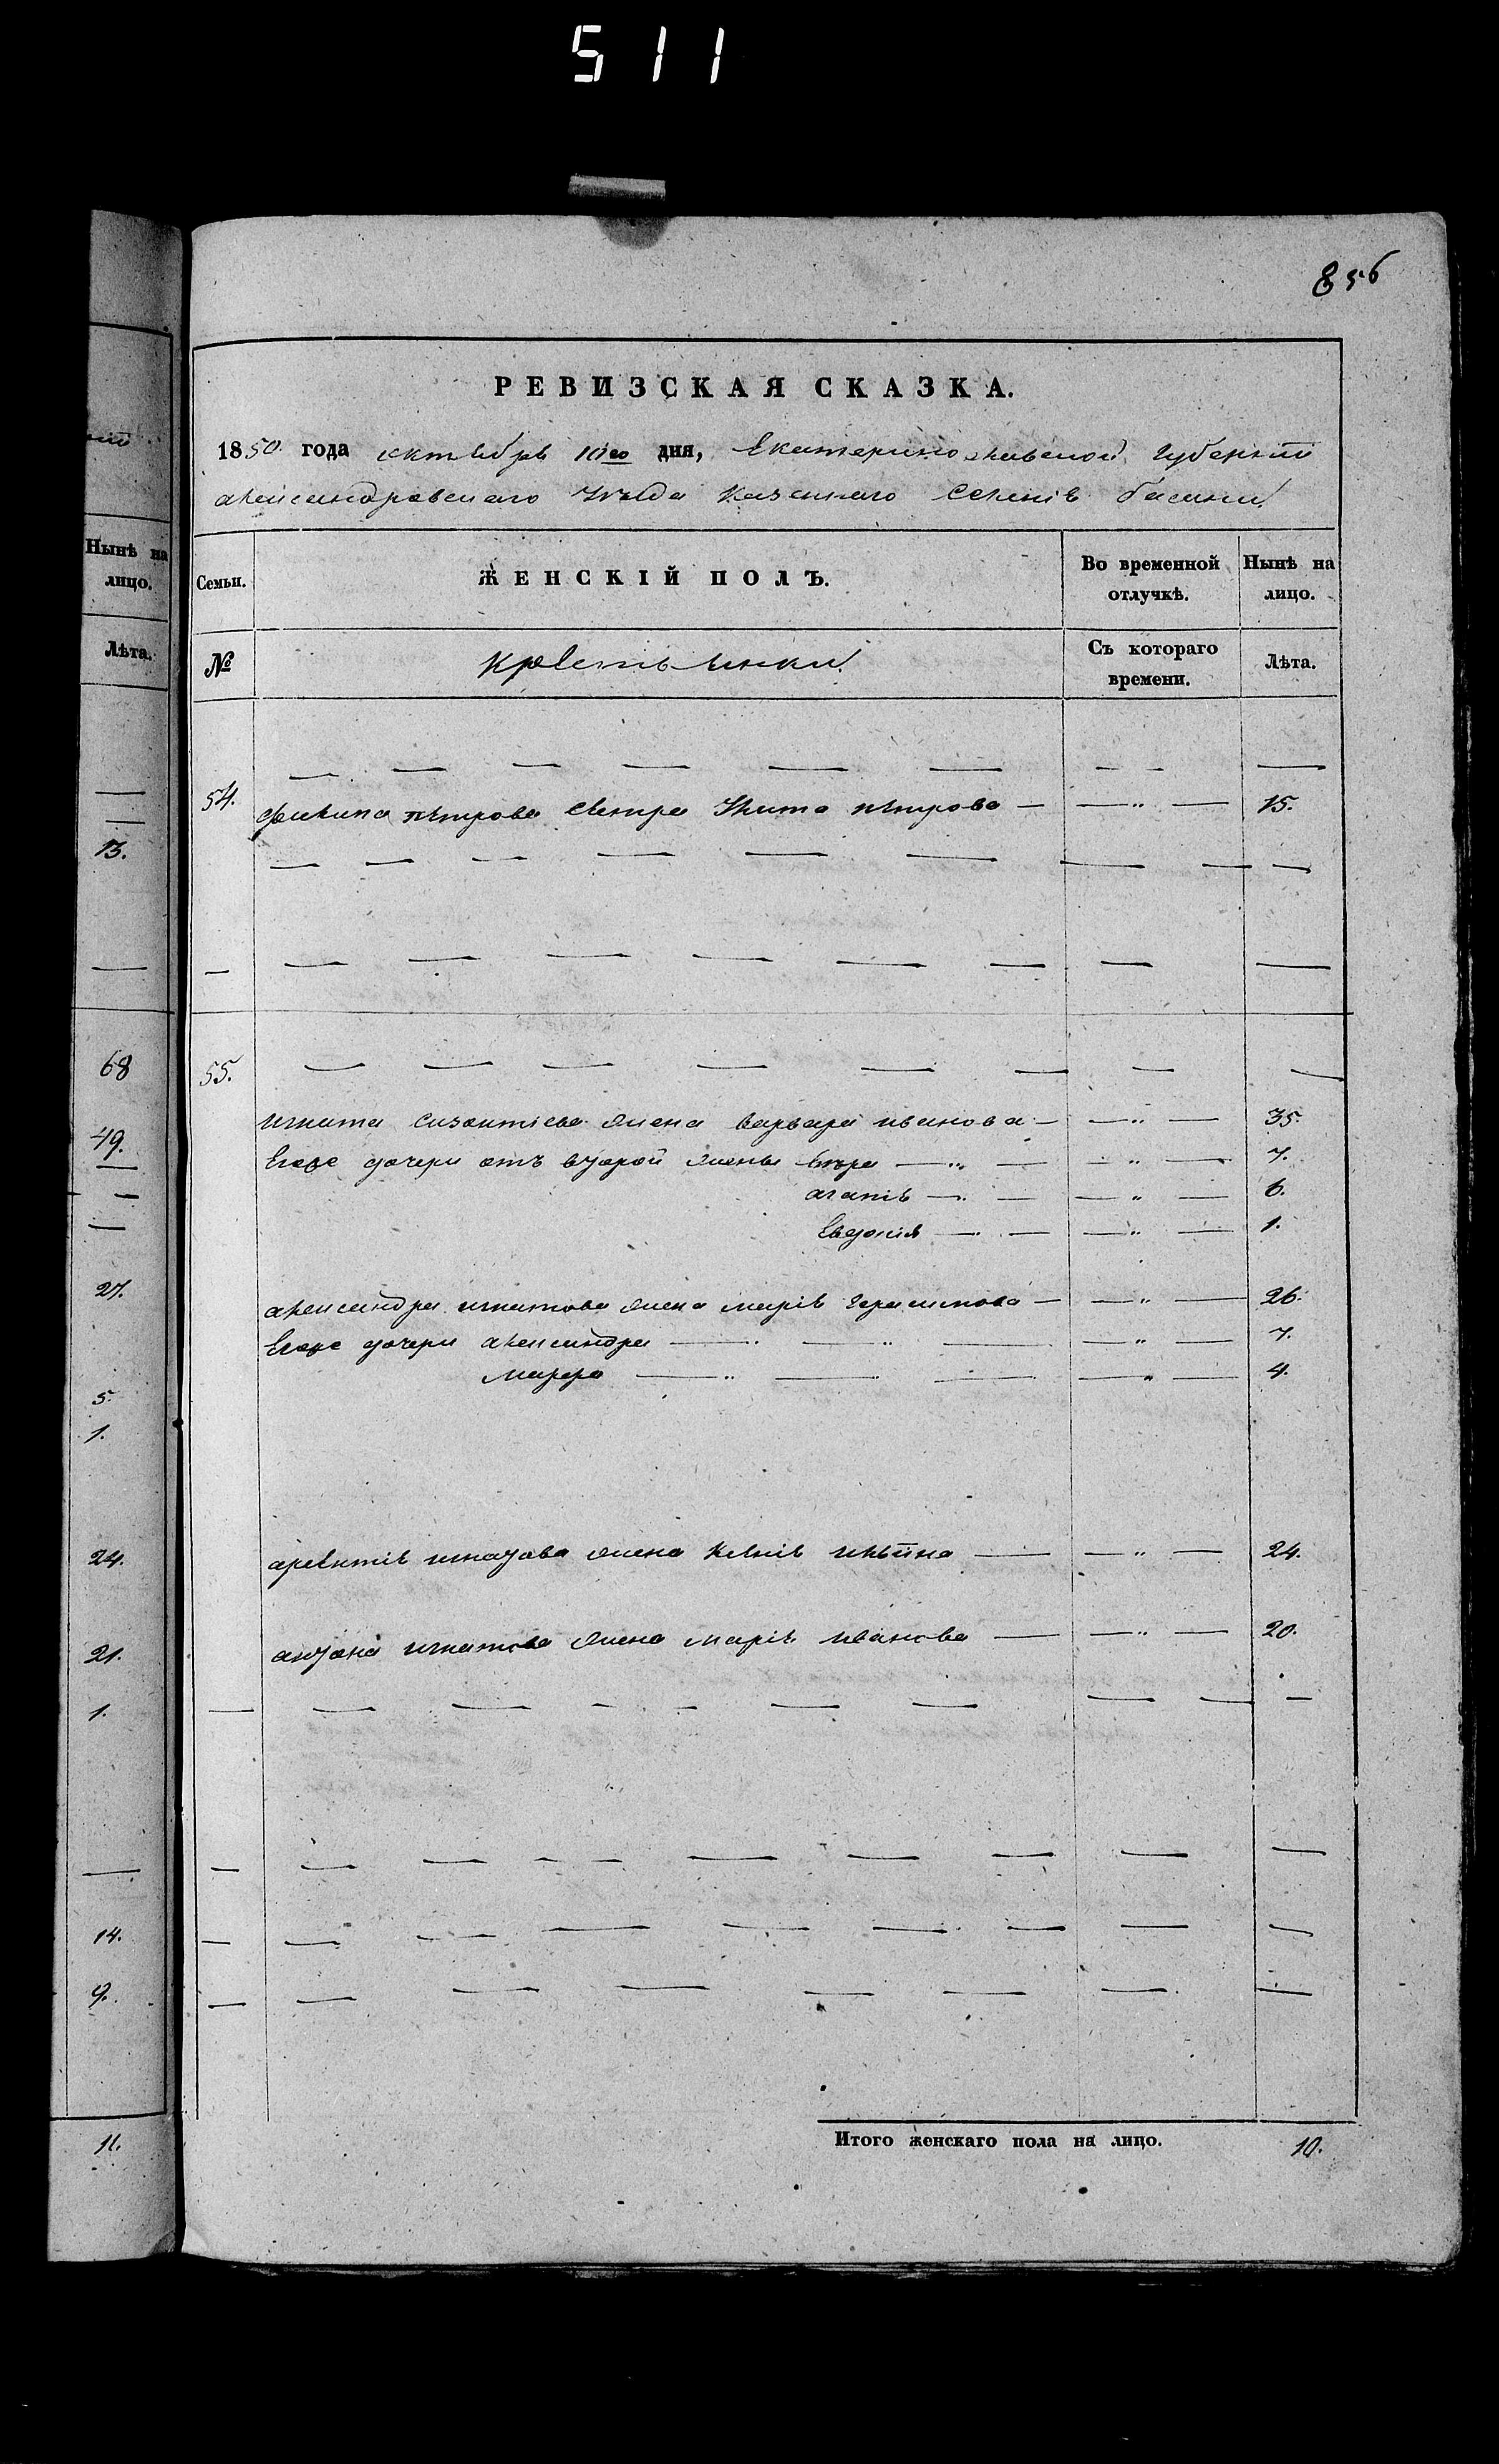 511
856
РЕВИЗСКАЯ СКАЗКА.
1850 года октября 10го дня, Екатеринославской Губернии
александровскаго Уезда казеннаго селенія басани
Нынѣ на лицо.
Семьи.
ЖЕНСКІЙ ПОЛЪ.
Во временной отлучкѣ.
Нынѣ на лицо.
Лѣта.
№
крестьянки
Съ котораго времени.
Лѣта.
54. филипа петрова сестра петрова — — „ — 15.
13.
68
55.
49.
игната жена варвара иванова — — „ — 35.
Егоже дочери отъ второй жены вера — „ — — „ — 7.
агапія — „ — — „ — 6.
Евдокія — „ — — „ — 1.
27.
александра игнатова жена марія герасимова — — „ — 26.
Егоже дочери александра — „ — „ — — „ — 7.
марфа — „ — „ — — „ — 4.
5.
1.
24.
игнатова жена ксенія — — „ — 24.
21.
антона игнатова жена марія иванова — — „ — 20.
1.
14.
9.
11.
Итого женскаго пола на лицо. 10.